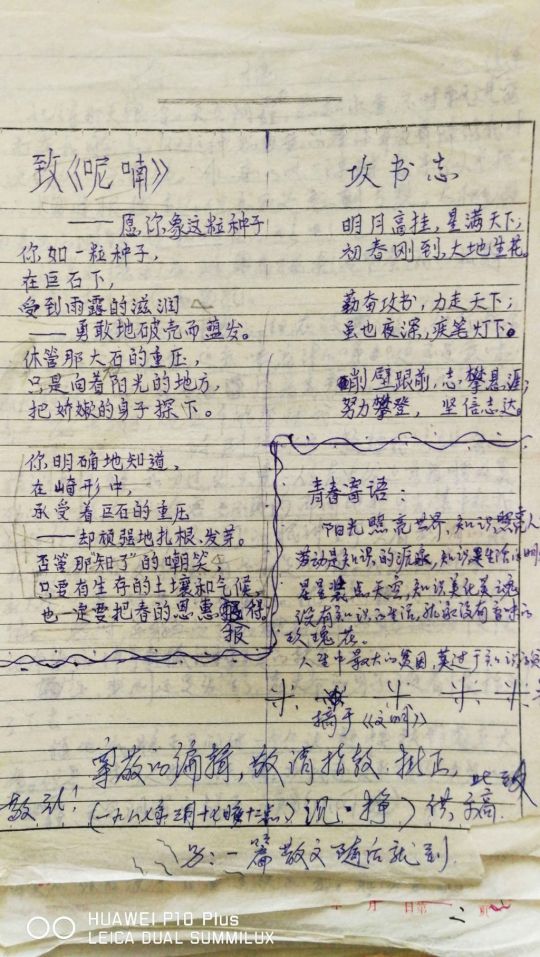 致《呢喃》
——愿你象这粒种子
你如一粒种子，
在巨石下，
受到雨露的滋润
——勇敢地破壳而蓝发。
休管那大石的重压，
只是向着阳光的地方，
把娇嫩的身子探下。
你明确地知道，
在崎形中，
承受着巨石的重压
——却顽强地扎根、发芽。
否管那"知了"的嘲笑，
只要有生存的土壤和气候，
也一定要把春的恩惠 得。
报
攻书志
明月高挂，星满天下；
初春刚到，大地生花。
勤奋攻书，力走天下；
虽也夜深，疾笔灯下。
峭壁跟前，志攀悬涯；
努力攀登，坚信志达。
青春寄语：
阳光照亮世界，知识照亮人
劳动是知识的源泉，知识是生活的明
星星装点天空，知识美化灵魂
没有知识的生活，就象没有香味的
玫瑰花。
人生中最大的贫困，莫过于知识的贫
摘于《文明》
尊敬的编辑，敬请指教·批正，此致
敬礼！（一九八七年三月十七晚十二点） 供稿
另：一篇散文随后就到.
年 月 日第 二 期
HUAWEI P10 Plus
LEICA DUAL SUMMILUX